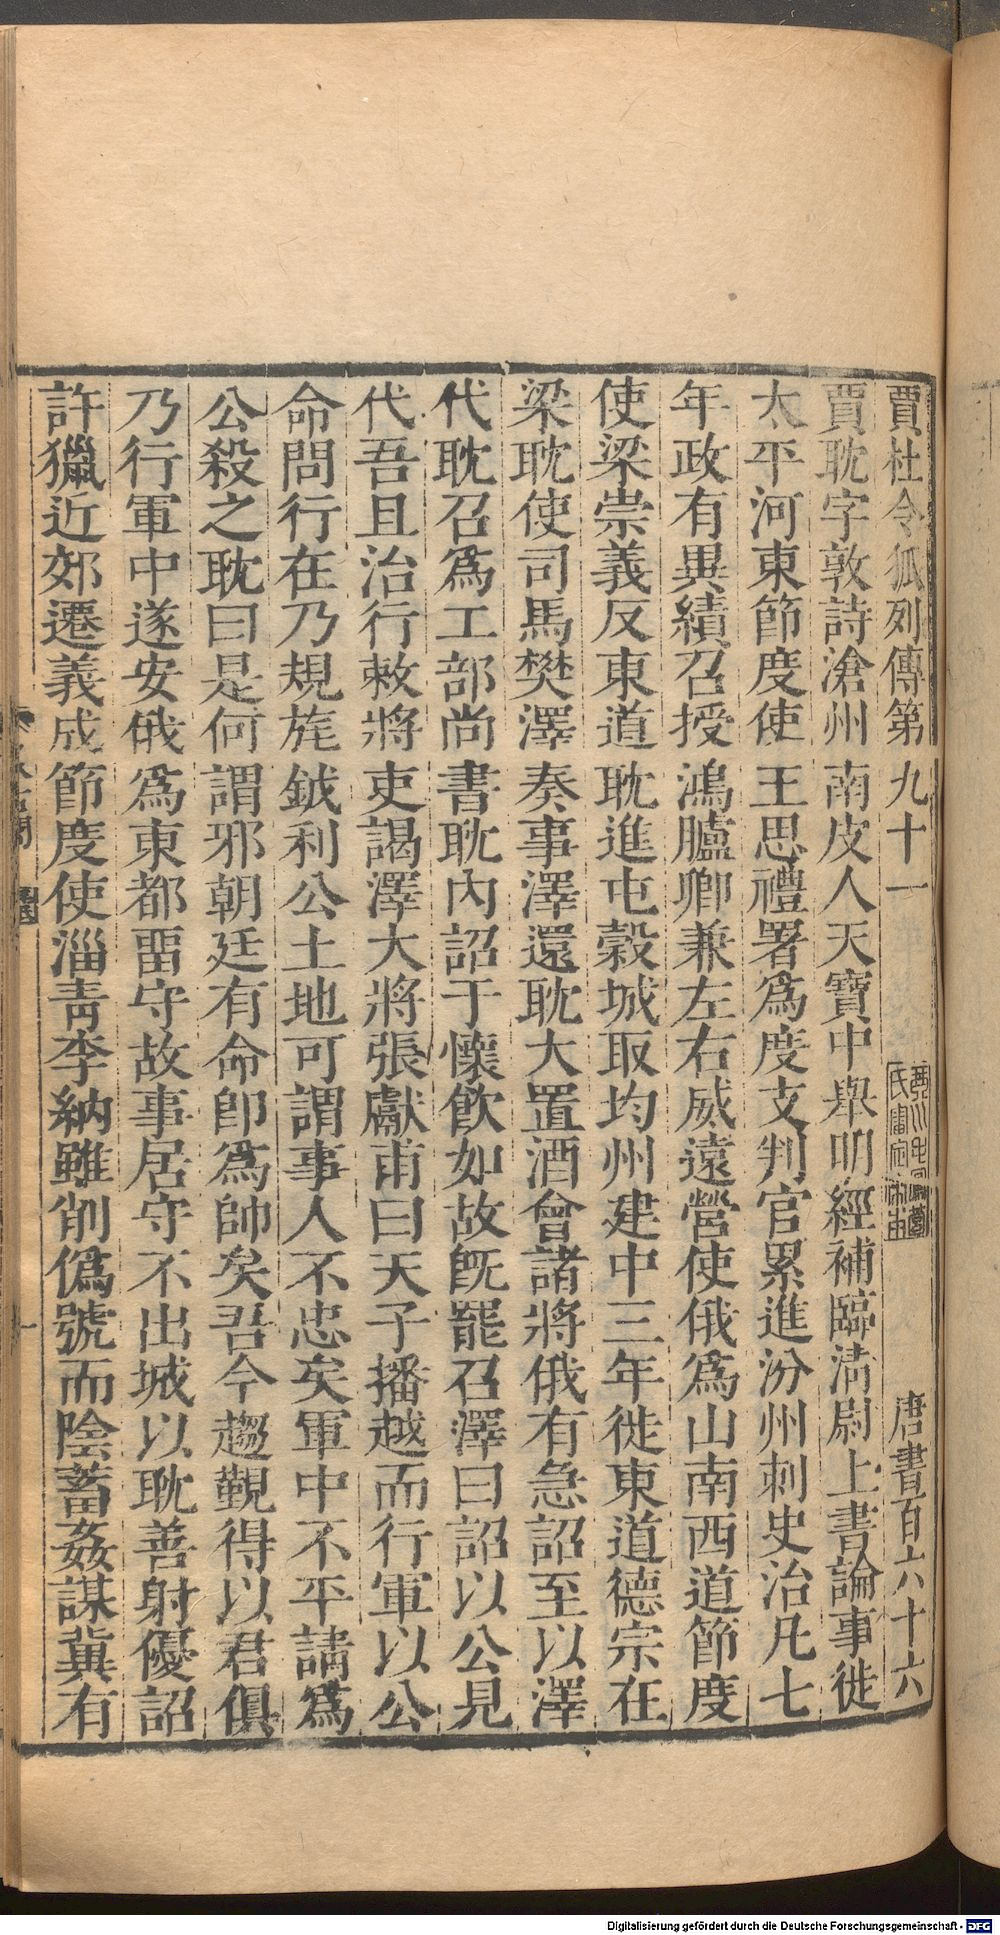 賈杜令狐列傳第九十一 唐書百六十六
賈耽字敦詩滄州南皮人天寶中舉明經補臨淸尉上書論事徙
太平河東節度使王思禮署爲度支判官累進汾州刺史治凡七
年政有異績召授鴻臚卿兼左右威遠營使俄爲山南西道節度
使梁崇義反東道耽進屯穀城取均州建中三年徙東道德宗在
梁耽使司馬樊澤奏事澤還耽大置酒會諸將俄有急詔至以澤
代耽召爲工部尚書耽內詔于懷飮如故旣罷召澤曰詔以公見
代吾且治行敕將吏謁澤大將張獻甫曰天子播越而行軍以公
命問行在乃規旄鉞利公土地可謂事人不忠矣軍中不平請爲
公殺之耽曰是何謂邪朝廷有命卽爲帥矣吾今趨覲得以君俱
乃行軍中遂安俄爲東都畱守故事居守不出城以耽善射優詔
許獵近郊遷義成節度使淄靑李納雖削僞號而陰蓄姦謀冀有
一
Digitalisierung gefördert durch die Deutsche Forschungsgemeinschaft - DFG